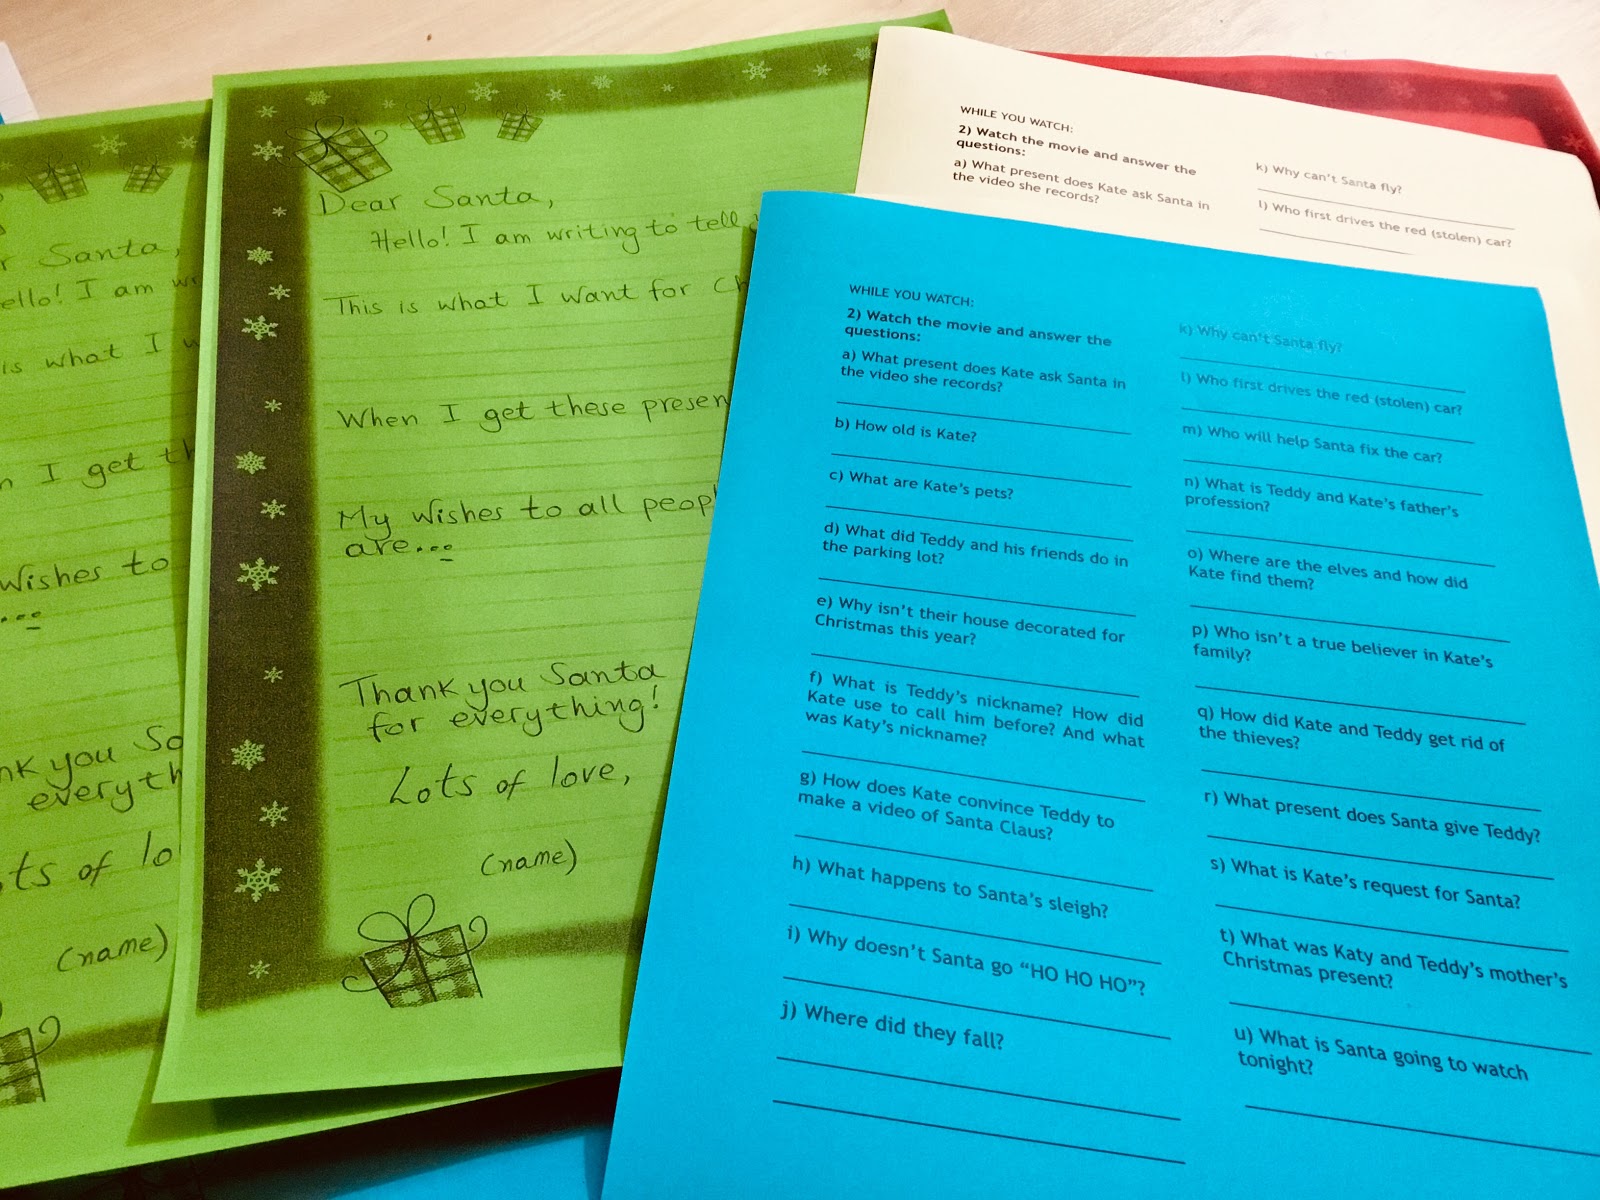 r Santa,
ello! I am wr
is what I w
n I get th
Wishes to
...
nk you So
everyth
ts of lo
(name)
Dear Santa,
Hello! I am writing to tell
This is what I want for Ch
When I get these presen
My wishes to all peop
are...
Thank you Santa
for everything!
Lots of love,
(name)
WHILE YOU WATCH:
2) Watch the movie and answer the
questions:
a) What present does Kate ask Santa in
the video she records?
k) Why can't Santa fly?
l) Who first drives the red (stolen) car?
WHILE YOU WATCH:
2) Watch the movie and answer the
questions:
a) What present does Kate ask Santa in
the video she records?
b) How old is Kate?
c) What are Kate's pets?
d) What did Teddy and his friends do in
the parking lot?
e) Why isn't their house decorated for
Christmas this year?
f) What is Teddy's nickname? How did
Kate use to call him before? And what
was Katy's nickname?
g) How does Kate convince Teddy to
make a video of Santa Claus?
h) What happens to Santa's sleigh?
i) Why doesn't Santa go "HO HO HO"?
j) Where did they fall?
k) Why can't Santa fly?
l) Who first drives the red (stolen) car?
m) Who will help Santa fix the car?
n) What is Teddy and Kate's father's
profession?
o) Where are the elves and how did
Kate find them?
p) Who isn't a true believer in Kate's
family?
q) How did Kate and Teddy get rid of
the thieves?
r) What present does Santa give Teddy?
s) What is Kate's request for Santa?
t) What was Katy and Teddy's mother's
Christmas present?
u) What is Santa going to watch
tonight?